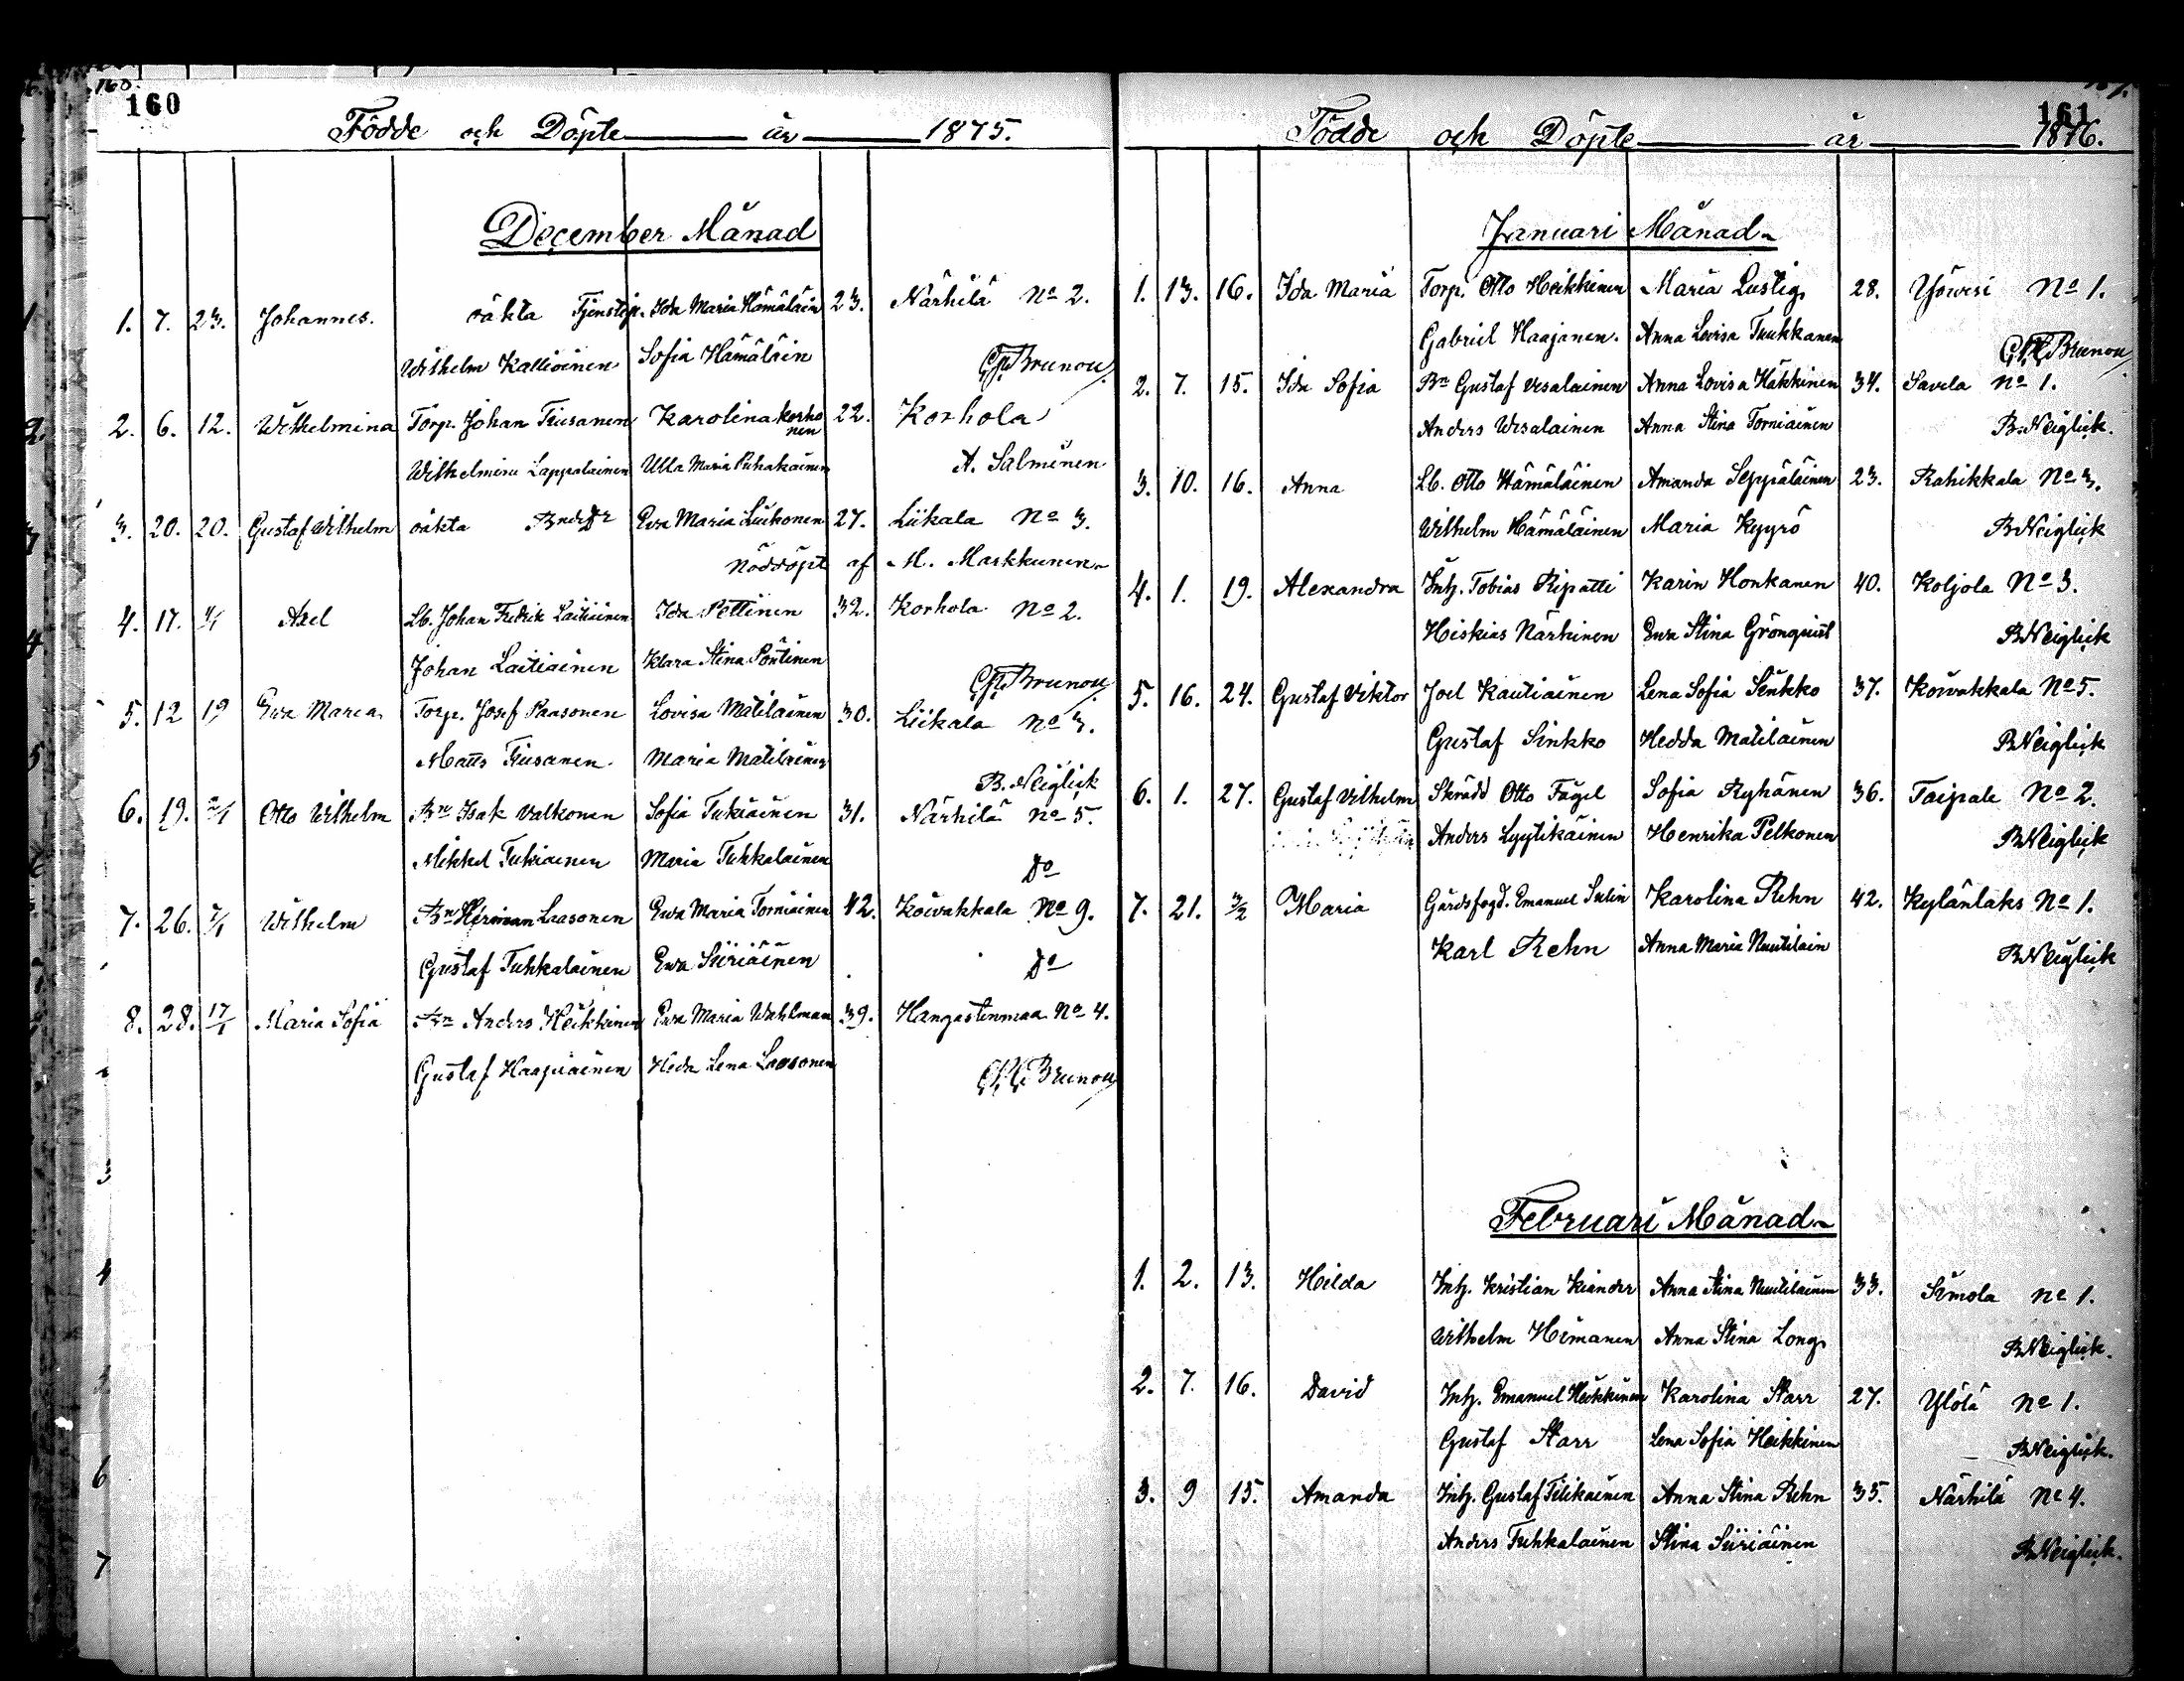 160
Födde och Döpte år 1875.
December Månad
1. 7. 23. Johannes. oäkta Tjenstep. Ida Maria Hämäläin 23. Närhilä No 2.
Wilhelm Kallioinen Sofia Hämäläin Brunou
2. 6. 12. Wilhelmina Torp. Johan Tiusanen Karolina Korhonen 22. Korhola
Wilhelmina Lappalainen Ulla Maria Puhakainen A. Salmenen
3. 20. 20. Gustaf Wilhelm oäkta BndeDr Ewa Maria Liikonen 27. Liikala No 3.
nöddöpt af M. Markkunen
4. 17. 1/1 Axel Lb. Johan Fredrik Laitiainen Ida Pöttinen 32. Korhola No 2.
Johan Laitiainen Klara Stina Pöntinen Brunou
5. 12 19 Ewa Maria Torp. Josef Paasonen Lovisa Matilainen 30. Liikala No 3.
Matts Tiusanen. Maria Matilainen B. Neiglick
6. 19. 2/1 Otto Wilhelm Bn Isak Valkonen Sofia Tukiainen 31. Närhilä No 5.
Mikkel Tukiainen Maria Tuhkalainen Do
7. 26. 7/1 Wilhelm Bn Herman Laasonen Ewa Maria Torniainen 42. Koivakkala No 9.
Gustaf Tuhkalainen Ewa Siiriäinen Do
8. 28. 17/1 Maria Sofia Bn Anders Heikkinen Ewa Maria Wahlman 39. Hangastenmaa No 4.
Gustaf Haapiainen Heda Lena Laasonen Brunou
161
Födde och Döpte år 1876.
Januari Månad
1. 13. 16. Ida Maria Torp. Otto Heikkinen Maria Lustig 28. Yöwesi No 1.
Gabriel Haajanen. Anna Lovisa Tuukkanen Brunou
2. 7. 15. Ida Sofia Bn Gustaf Vesalainen Anna Lovisa Häkkinen 34. Savela No 1.
Anders Wesalainen Anna Stina Torniainen B. Neiglick.
3. 10. 16. Anna Lb. Otto Hämäläinen Amanda Seppäläinen 23. Rahikkala No 3.
Wilhelm Hämäläinen Maria Kyyrö BNeiglick
4. 1. 19. Alexandra Inh. Tobias Ripatti Karin Honkanen 40. Koljola No 3.
Hiskias Närhinen Ewa Stina Grönqvist BNeiglick
5. 16. 24. Gustaf Viktor Joel Kautiainen Lena Sofia Sinkko 37. Koivakkala No 5.
Gustaf Sinkko Hedda Matilainen BNeiglick
6. 1. 27. Gustaf Vilhelm Skrädd Otto Fågel Sofia Ryhänen 36. Taipale No 2.
Anders Lyytikäinen Henrika Pelkonen BNeiglick
7. 21. 3/2 Maria Gårdsfogd. Emanuel Sulin Karolina Rehn 42. Kylänlaks No 1.
Karl Rehn Anna Maria Nuutilain BNeiglick
Februari Månad
1. 2. 13. Hilda Inh. Kristian Kiander Anna Stina Nuutilainen 33. Simola No 1.
Wilhelm Himanen Anna Stina Long BNeiglick.
2. 7. 16. David Inh. Emanuel Heikkinen Karolina Starr 27. Ylölä No 1.
Gustaf Starr Lena Sofia Heikkinen BNeiglick.
3. 9 15. Amanda Inh. Gustaf Tilikainen Anna Stina Rehn 35. Närhilä No 4.
Anders Tuhkalainen Stina Siiriäinen BNeiglick.